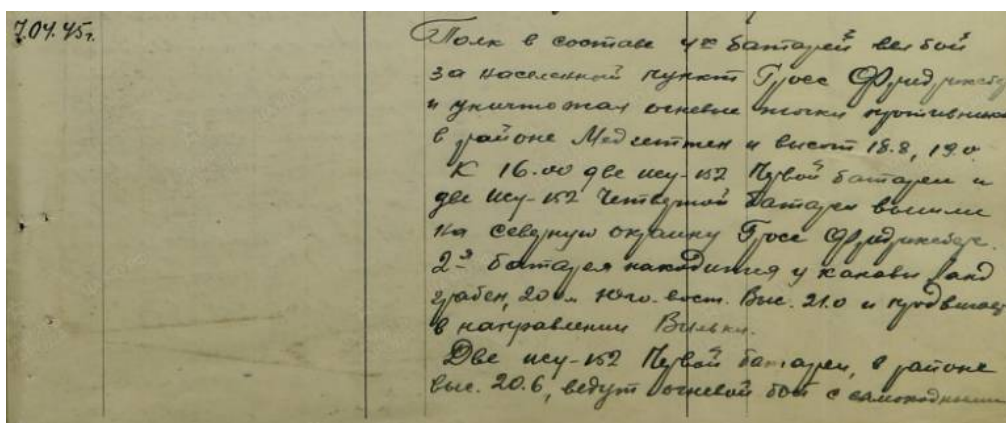 7.04.45г.
Полк в составе 4х батарей вел бой
за населенный пункт Гросс Фридрихсбер
и уничтожал огневые точки противника
в районе Медсеттен и высот 18.8, 19.0
К 16.00 две ису-152 Первой батареи и
две ису-152 Четвертой батареи вышли
на северную окраину Гросс Фридрихсберг.
2-я батарея находится у канавы Ланд
грабен, 20 м юго-вост. Выс. 21.0 и
в направлении Вильки.
Две ису-152 Первой батареи, в районе
выс. 20.6, ведут огневой бой с самоходными